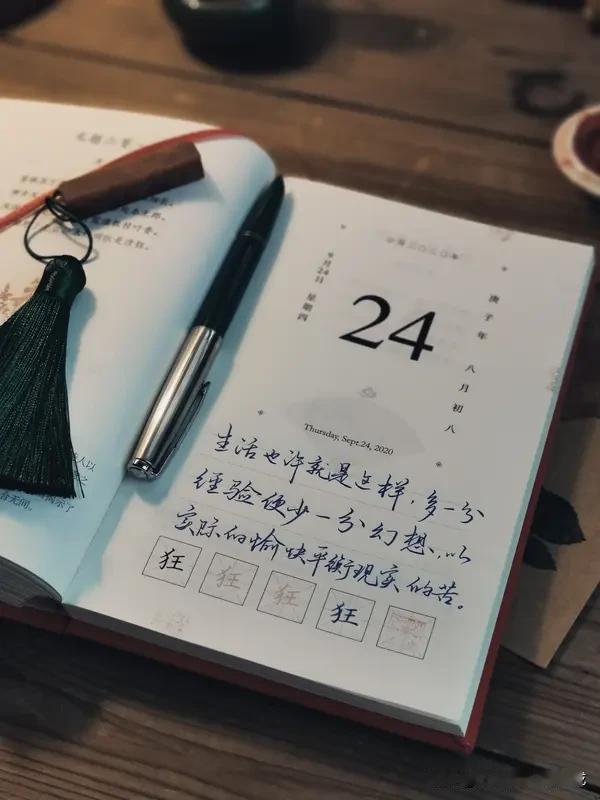 二〇二〇年
9月24日 星期四
庚子年 八月初八
24
Thursday, Sept.24, 2020
生活也许就是这样,多一分
经验便少一分幻想,以
实际的愉快平衡现实的苦。
狂 狂 狂 狂